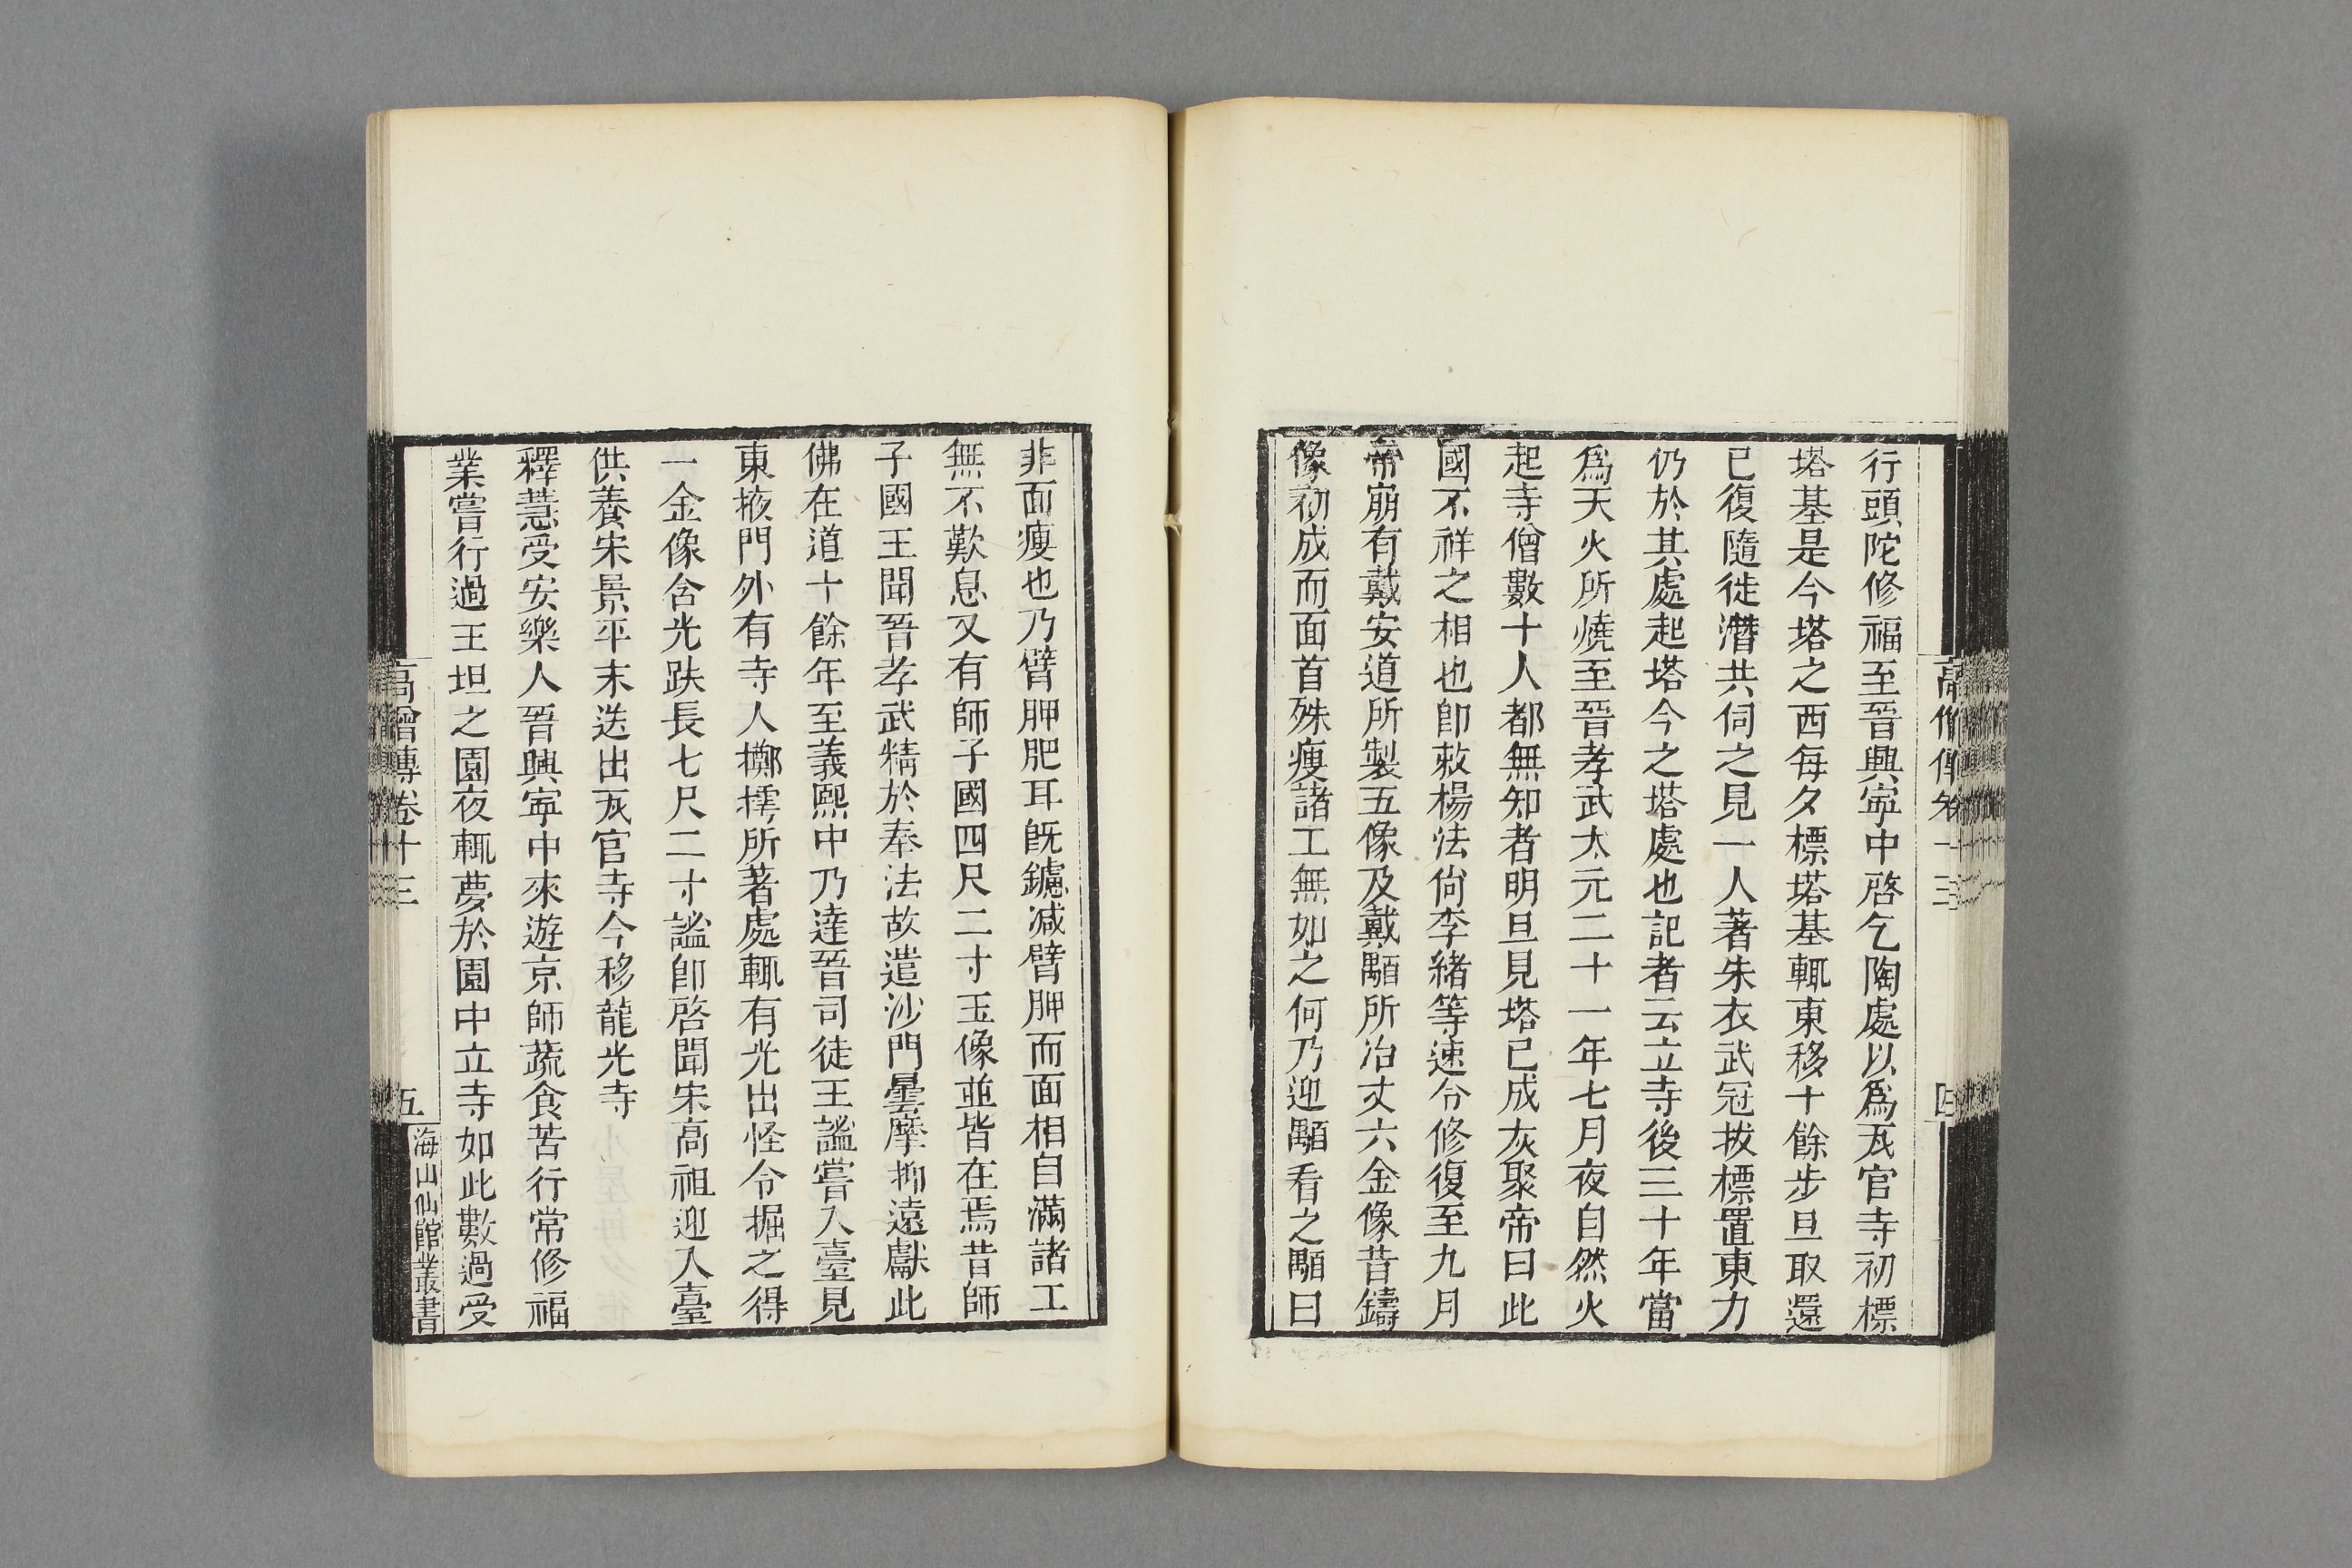 行頭陀修福至晉興寧中啓乞陶處以爲瓦官寺初標
塔基是今塔之西每夕標塔基輒東移十餘步旦取還
已復隨徙潛共伺之見一人著朱衣武冠拔標置東力
仍於其處起塔今之塔處也記者云立寺後三十年當
爲天火所燒至晉孝武太元二十一年七月夜自然火
起寺僧數十人都無知者明旦見塔已成灰聚帝曰此
國不祥之相也卽敕楊法尙李緒等速令修復至九月
帝崩有戴安道所製五像及戴顒所冶丈六金像昔鑄
像初成而面首殊瘦諸工無如之何乃迎顒看之顒曰
高僧傳卷十三
四
非面瘦也乃臂胛肥耳旣鑢減臂胛而面相自滿諸工
無不歎息又有師子國四尺二寸玉像並皆在焉昔師
子國王聞晉孝武精於奉法故遣沙門曇摩抑遠獻此
佛在道十餘年至義熙中乃達晉司徒王謐嘗入臺見
東掖門外有寺人擲摴所著處輒有光出怪令掘之得
一金像含光趺長七尺二寸謐卽啓聞宋高祖迎入臺
供養宋景平末送出瓦官寺今移龍光寺
釋慧受安樂人晉興寧中來遊京師蔬食苦行常修福
業嘗行過王坦之園夜輒夢於園中立寺如此數過受
高僧傳卷十三
五
海山仙館叢書